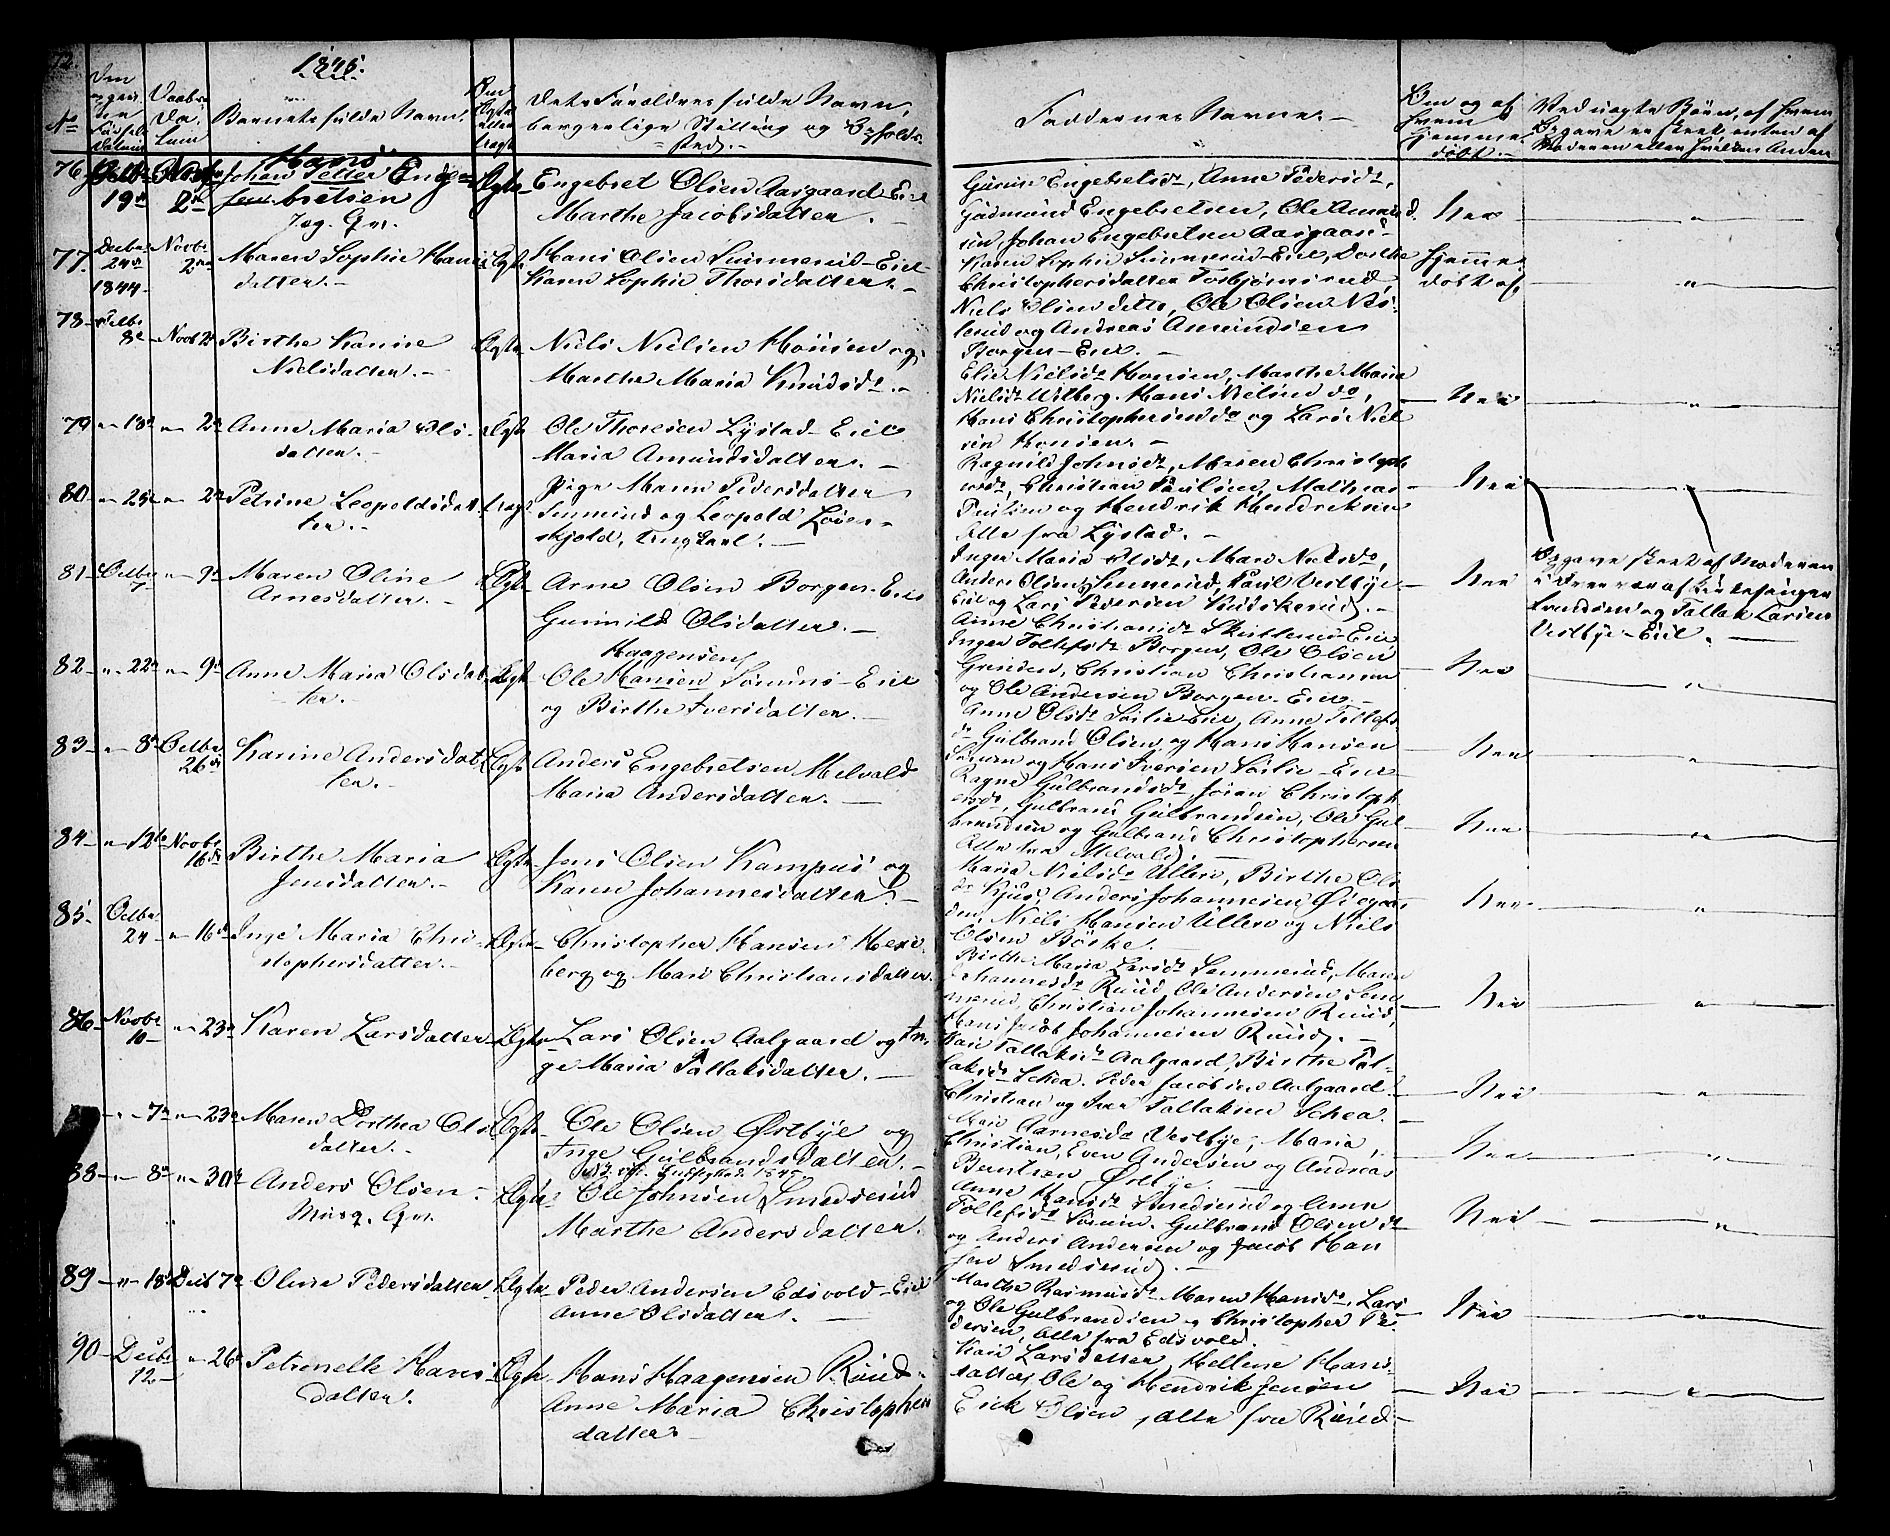 1845.
No
Den
Daabs
Da-
tum
Barnets fulde Navn.
Den
Ægte
eller
Uægte
dets Forældres fulde Navn,
borgerlige Stilling og Opholds-
sted.
Faddernes Navne.
Om og af
hvem
hjemme-
døbt.
Ved uægte Børn, af hvem
Opgave er skeet, enten af
Moderen eller hvilken Anden
76
19de
2den
Hans
Johan Petter Enge-
bretsen
Ægte
Engebret Olsen Aasgaard Eiet
Marthe Jacobsdatter.
Gunine Engebretsdr, Anne Pedersdr,
Gudmund Engebretsen, Ole Amund-
sen, Johan Engebretsen Aasgaard
Nei
77
Decbr
24de
1844
Novbr
2den
Maren Sophie Hans-
datter.
Ægte
Hans Olsen Simmerud-Eiet
Karen Sophie Thorsdatter.
Karen Sophie Simmerud-Eiet, Dorthe
Christophersdatter Torbjørnsrud,
Niels Olsen ditto, Ole Olsen
og Andreas Amundsen
Borgen-Eiet.
Hjemme-
døbt af
78
8de
Novbr 2
Birthe Karine
Nielsdatter.
Ægte
Niels Nielsen Honsen og
Marthe Maria Knudsdr.
Elie Nielsdr Honsen, Marthe Maria
Nielsdr Uilberg, Hans Nielsen do,
Hans Christophersen do og Lars Niel-
sen Honsen.
Nei
79
" 18de
" 2den
Anne Maria Ols-
datter.
Ægte
Ole Thoresen Lystad-Eiet
Maria Amundsdatter.
Ragnild Johnsdr, Maren Christoph-
ersdr, Christian Paulsen, Mathias
Paulsen og Hendrik Hendriksen
Alle fra Lystad.
Nei
80
" 25de
" 2den
Petrine Leopoldsdat-
ter.
Uægte
Pige Maren Pedersdatter
Simmerud og Leopold Løven-
skjold, Ungkarl.
Inger Maria Olsdr, Mari Nielsdr,
Anders Olsen Simmerud, Paul Vestbye-
Eiet og Lars Pedersen
Nei
Opgave skeet af Moderen
i Overvær af Kirkesanger
Knudsen og Tallak Larsen
Vestbye-Eiet.
81
Octbr
7
" 9de
Maren Oline
Arnesdatter.
Ægte
Arne Olsen Borgen-Eiet
Gunnild Olsdatter.
Anne Christiansdr
Inger Tollefsdr Borgen, Ole Olsen
Grinden, Christian Christiansen
og Ole Andersen Borgen-Eiet.
Nei
82
" 22de
" 9de
Anne Maria Olsdat-
ter.
Ægte
Haagensen
Ole Hansen Sørums-Eiet
og Birthe Iversdatter.
Anne Olsdr Søilie-Eiet, Anne Tollefs-
dr Gulbrand Olsen og Hans Hansen
Sørum og Hans Iversen Søilie-Eiet
Nei
83
" 8de
Octbr
26de
Karine Andersdat-
ter.
Ægte
Anders Engebretsen Melvald
Maria Andersdatter.
Ragne Gulbrandsdr, Joran Christoph-
ersdr, Gulbrand Gulbrandsen, Ole Gul-
brandsen og Gulbrand Christophersen
Alle fra Melvald.
Nei
84
" 12te
Novbr
16de
Birthe Maria
Jensdatter.
Ægte
Jens Olsen Kampus og
Karen Johannesdatter.
Maria Nielsdr Ullern, Birthe Ols-
dr Kjus, Anders Johannesen Øiegaar-
den, Niels Hansen Ullern og Niels
Olsen Børke.
Nei
85
Octbr
24
" 16de
Inge Maria Chri-
stophersdatter.
Ægte
Christopher Hansen Hexe-
berg og Mari Christiansdatter.
Birthe Maria Larsdr Semmerud, Maren
Johannesdr Ruud, Ole Andersen Sem-
merud, Christian Johannesen Ruud,
Hans Jacob Johannesen Ruud.
Nei
86
Novbr
10
" 23de
Karen Larsdatter
Ægte
Lars Olsen Aalgaard og In-
ge Maria Tallaksdatter.
Kari Tallaksdr Aalgaard, Birthe Tal-
laksdr Schea. Peder Jacobsen Aalgaard
Christian og Iver Tallaksen Schea.
Nei
" 7de
" 23de
Maren Dorthea Ols-
datter.
Ægte
Ole Olsen Østbye og
Inge Gulbrandsdatter.
Mari Aarnesdr Vestbye, Maria,
Christian, Even Andersen og Andreas
Berntsen Østbye.
Nei
88
" 8de
" 30te
Anders Olsen.
Ægte
Ole Johnsen Smedserud
Marthe Andersdatter.
Anne Hansdr Smedserud og Anne
Tollefsdr Sørum. Gulbrand Olsen do
og Anders Andersen og Jacob Han-
sen Smedserud.
Nei
89
" 18de
Decb 7de
Oline Pedersdatter
Ægte
Peder Andersen Edsvold-Eiet
Anne Olsdatter.
Marthe Rasmusdr Maren Hansdr, Lars
og Ole Gulbrandsen og Christopher Pe-
dersen, Alle fra Edsvold.
Nei
90
Decbr
12
" 26de
Petronelle Hans-
datter.
Ægte
Hans Haagensen Ruud
Anne Maria Christophers-
datter.
Kari Larsdatter, Hellene Hans-
datter, Ole og Hendrik Jensen
Erik Olsen, Alle fra Ruud.
Nei